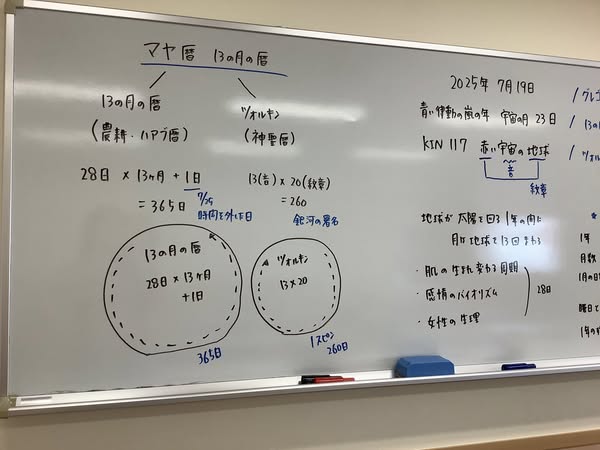 マヤ暦 13の月の暦
13の月の暦
(農耕・ハアブ暦)
ツォルキン
(神聖暦)
28日 × 13ヶ月 + 1日
= 365日
7/25
時間を外した日
13(音) × 20(紋章)
= 260
銀河の署名
13の月の暦
28日 × 13ヶ月
+1日
365日
ツォルキン
13×20
1スピン
260日
2025年 7月19日
青い律動の嵐の年 宇宙の月 23日
KIN 117 赤い宇宙の地球
音
紋章
地球が太陽を回る1年の間に
月は地球を13回まわる
・肌の生まれ変わる周期
・感情のバイオリズム
・女性の生理
28日
/グレゴ
/13の
/ツォル
1年
月数
1月の日
曜日と
1年の